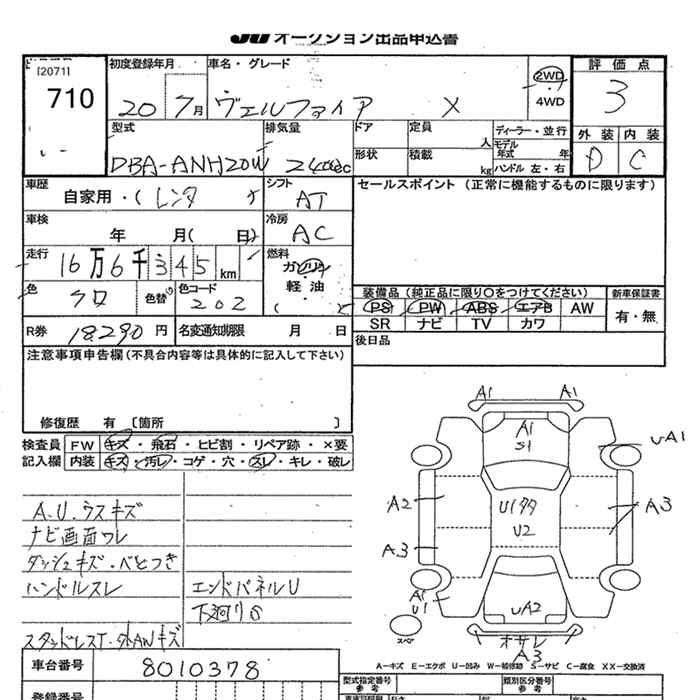 JU オークション出品申込書
[2071]
710
初度登録年月
20 7月
車名・グレード
ヴェルファイア X
2WD
4WD
評価点
3
型式
DBA-ANH20W
排気量
2400cc
ドア
形状
定員
人
積載
kg
ディーラー・並行
モデル年式
年
ハンドル 左・右
外装
D
内装
C
車歴
自家用・(レンタ
シフト
AT
セールスポイント (正常に機能するものに限ります)
車検
年 月( 日)
冷房
AC
走行
16万6千345km
燃料
ガソリン
軽油
( )
色
クロ
色替
色コード
202
装備品 (純正品に限り○をつけてください)
PS PW ABS エアB AW
SR ナビ TV カワ
新車保証書
有・無
R券
18290円
名変通知期限 月 日
後日品
注意事項申告欄(不具合内容等は具体的に記入して下さい)
修復歴 有 [箇所 ]
検査員
記入欄
FW キズ・飛石・ヒビ割・リペア跡・×要
内装 キズ・汚レ・コゲ・穴・スレ・キレ・破レ
A.U.ウスキズ
ナビ画面ワレ
ダッシュキズ・べとつき
ハンドルスレ
エンドパネルU
下廻りS
スタッドレスT・外AWキズ
A1 A1
A1
S1
UA1
A2
U1タタ
U2
A3
A3
A1
U1
UA2
スペア
オサレ
A3
A-キズ E-エクボ U-凹み W-補修跡 S-サビ C-腐食 XX-交換済
車台番号
8010378
登録番号
型式指定番号
参考
類別区分番号
参考